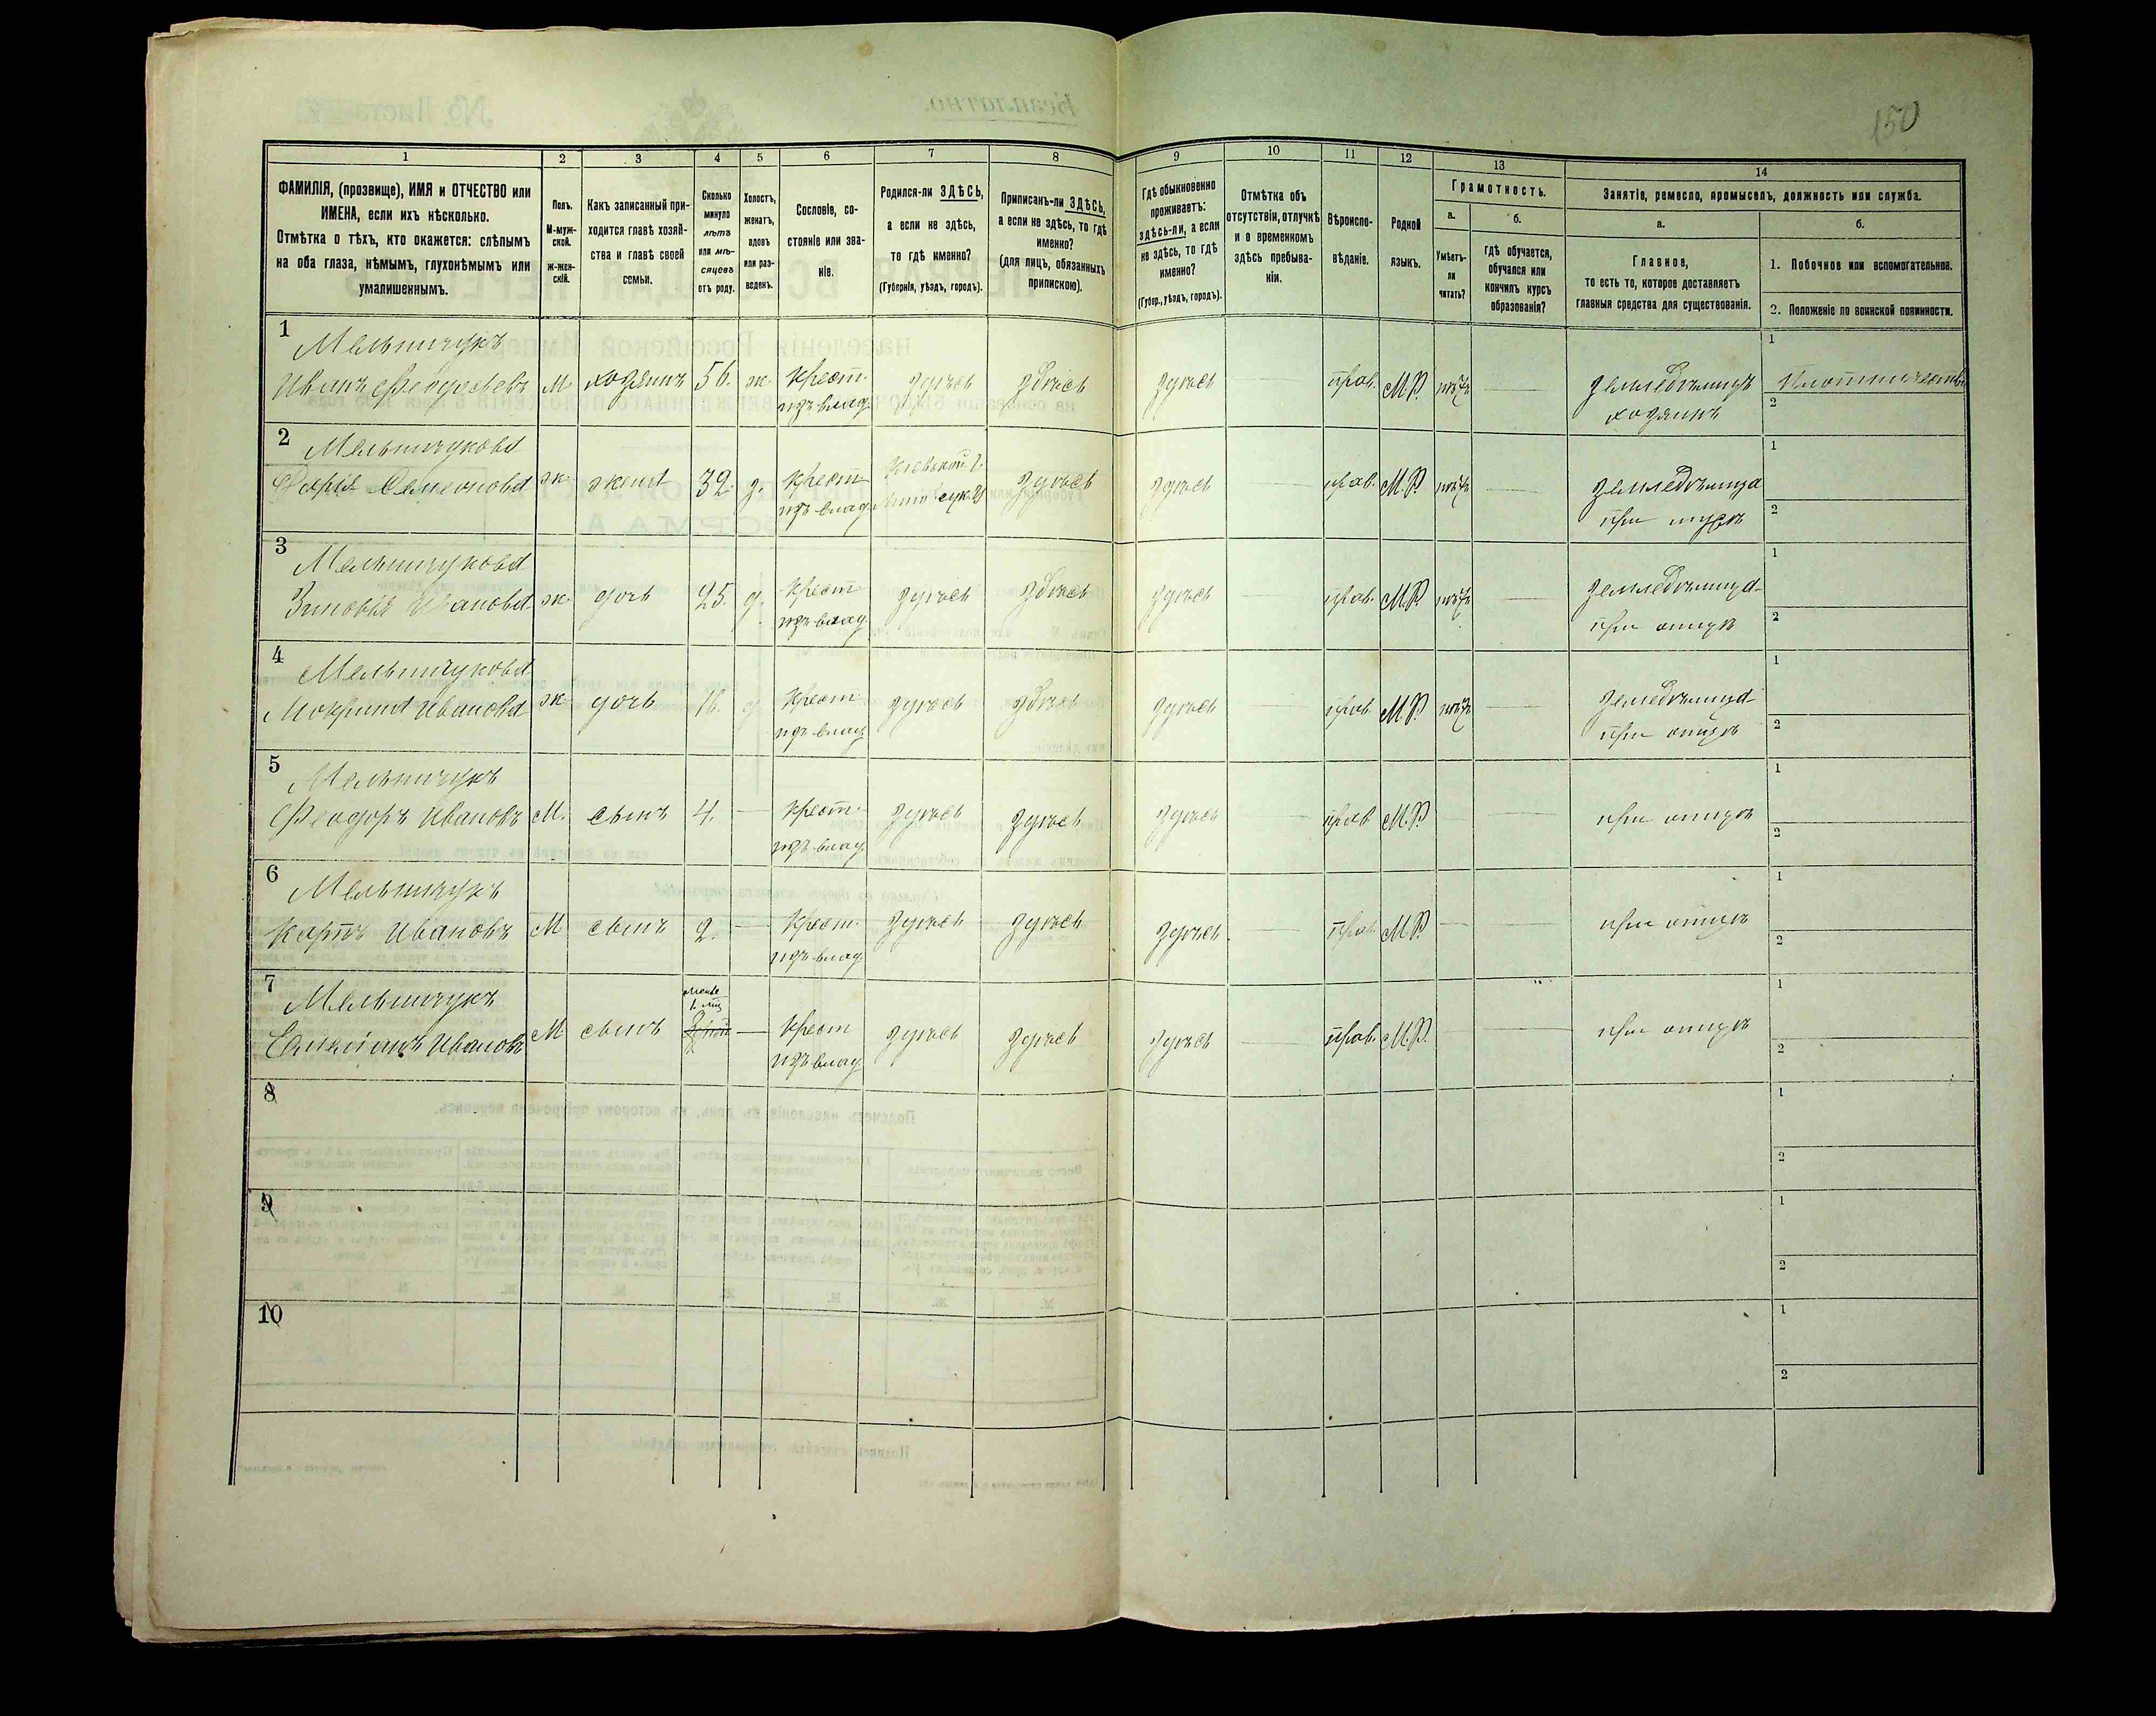 150
1 2 3 4 5 6 7 8 9 10 11 12 13 14
ФАМИЛІЯ, (прозвище), ИМЯ и ОТЧЕСТВО или
ИМЕНА, если ихъ нѣсколько.
Отмѣтка о тѣхъ, кто окажется: слѣпымъ
на оба глаза, нѣмымъ, глухонѣмымъ или
умалишеннымъ.
Полъ.
М-муж-
ской.
Ж-жен-
скій.
Какъ записанный при-
ходится главѣ хозяй-
ства и главѣ своей
семьи.
Сколько
минуло
лѣтъ
или мѣ-
сяцевъ
отъ роду.
Холостъ,
женатъ,
вдовъ
или раз-
веденъ.
Сословіе, со-
стояніе или зва-
ніе.
Родился-ли ЗДѢСЬ,
а если не здѣсь,
то гдѣ именно?
(Губернія, уѣздъ, городъ).
Приписанъ-ли ЗДѢСЬ,
а если не здѣсь, то гдѣ
именно?
(для лицъ, обязанныхъ
припискою).
Гдѣ обыкновенно
проживаетъ:
здѣсь-ли, а если
не здѣсь, то гдѣ
именно?
(Губер., уѣздъ, городъ).
Отмѣтка объ
отсутствіи, отлучкѣ
и о временномъ
здѣсь пребыва-
ніи.
Вѣроиспо-
вѣданіе.
Родной
языкъ.
Грамотность.
а.
Умѣетъ-
ли
читать?
б.
гдѣ обучается,
обучался или
кончилъ курсъ
образованія?
Занятіе, ремесло, промыселъ, должность или служба.
а.
Главное,
то есть то, которое доставляетъ
главныя средства для существованія.
б.
1. Побочное или вспомогательное.
2. Положеніе по воинской повинности.
1 Мельничукъ
Иванъ Феодоровъ М. хозяинъ 56. ж. Крест. здѣсь здѣсь здѣсь прав. М.Р. нѣтъ земледѣлецъ
изъ влад. хозяинъ
1
2
2 Мельничукова
Семеонова ж. жена 32. з. Крест. Кіевской г. здѣсь здѣсь прав. М.Р. нѣтъ
изъ влад. при мужѣ
1
2
3 Мельничукова
Зиновія Иванова ж. дочь 25. д. Крест. здѣсь здѣсь здѣсь прав. М.Р. нѣтъ
изъ влад. при отцѣ
1
2
4 Мельничукова
Мокрина Иванова ж. дочь 16. д. Крест. здѣсь здѣсь здѣсь прав. М.Р. нѣтъ
изъ влад. при отцѣ
1
2
5 Мельничукъ
Феодоръ Ивановъ М. сынъ 4. Крест. здѣсь здѣсь здѣсь прав. М.Р. при отцѣ
изъ влад.
1
2
6 Мельничукъ
Карпъ Ивановъ М. сынъ 2. Крест. здѣсь здѣсь здѣсь прав. М.Р. при отцѣ
изъ влад.
1
2
7 Мельничукъ
Ивановъ М. сынъ Крест. здѣсь здѣсь здѣсь прав. М.Р. при отцѣ
изъ влад.
1
2
8
1
2
9
1
2
10
1
2